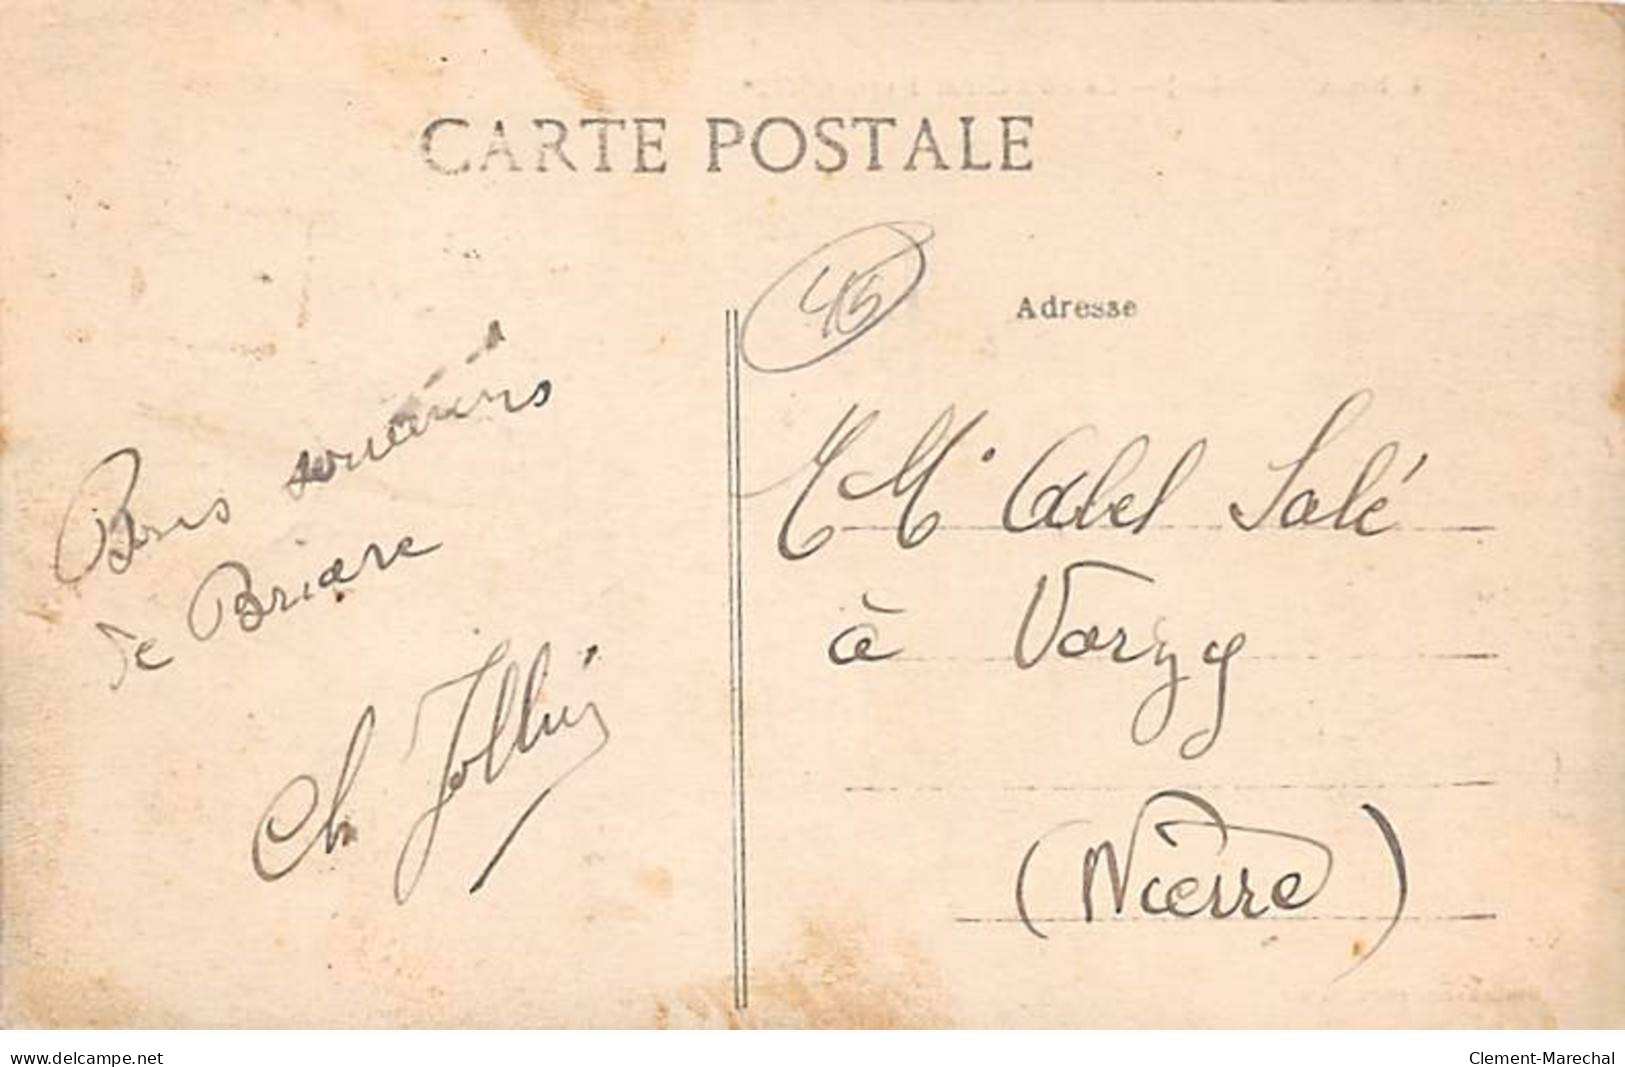 CARTE POSTALE
45
Adresse
Bons souvenirs
de Briare
Ch
MMr Abel Salé
à Varzy
(Nièvre)
www.delcampe.net
Clement-Marechal